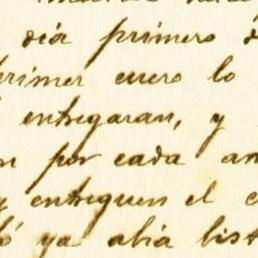 día primero d
primer cuero lo
entregaran, y
n por cada an
y entreguen el c
ó ya abia list